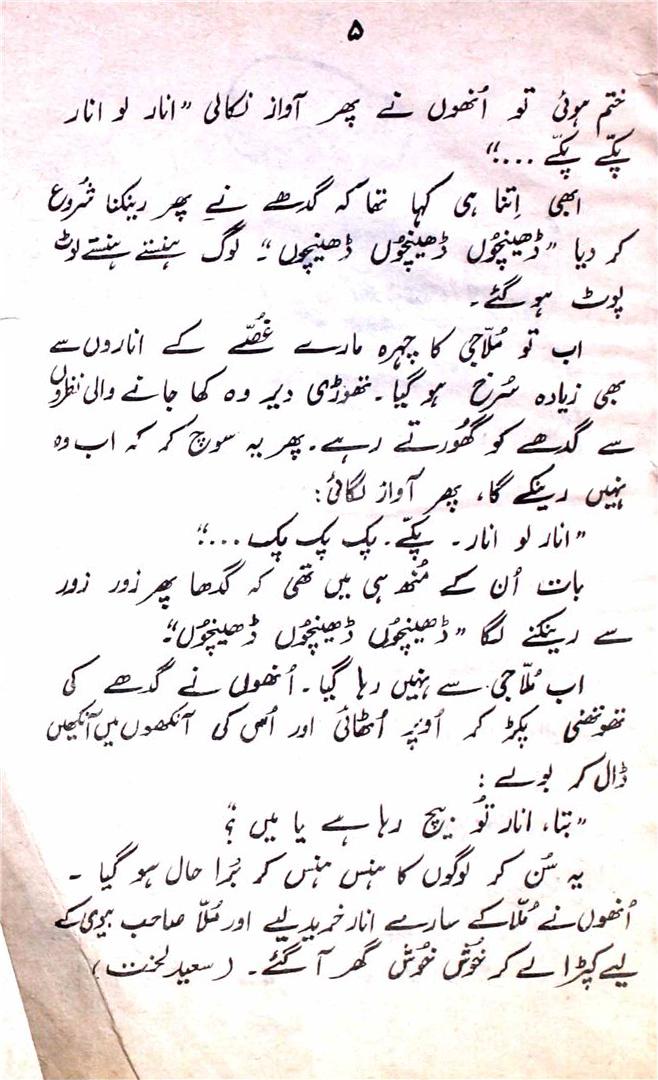 ۵
ختم ہوئی تو اُنھوں نے پھر آواز نکالی ”انار لو انار
پکّے پکّے ...“
ابھی اِتنا ہی کہا تھا کہ گدھے نے پھر رینکنا شُروع
کر دیا ”ڈھینچُوں ڈھینچُوں ڈھینچوں“۔ لوگ ہنستے ہنستے لوٹ
پوٹ ہو گئے۔
اب تو مُلّاجی کا چہرہ مارے غُصّے کے اناروں سے
بھی زیادہ سُرخ ہو گیا۔ تھوڑی دیر وہ کھا جانے والی نظروں
سے گدھے کو گھُورتے رہے۔ پھر یہ سوچ کر کہ اب وہ
نہیں رینکے گا، پھر آواز لگائی:
”انار لو انار۔ پکّے۔ پک پک پک ...“
بات اُن کے مُنھ ہی میں تھی کہ گدھا پھر زور زور
سے رینکنے لگا ”ڈھینچُوں ڈھینچُوں ڈھینچُوں“۔
اب مُلّاجی سے نہیں رہا گیا۔ اُنھوں نے گدھے کی
تھوتھنی پکڑ کر اُوپر اُٹھائی اور اُس کی آنکھوں میں آنکھیں
ڈال کر بولے :
”بتا، انار تُو بیچ رہا ہے یا میں ؟“
یہ سُن کر لوگوں کا ہنس ہنس کر بُرا حال ہو گیا ۔
اُنھوں نے مُلّا کے سارے انار خرید لیے اور مُلّا صاحب بیوی کے
لیے کپڑا لے کر خُوش خُوش گھر آ گئے۔ (سعید لخت)